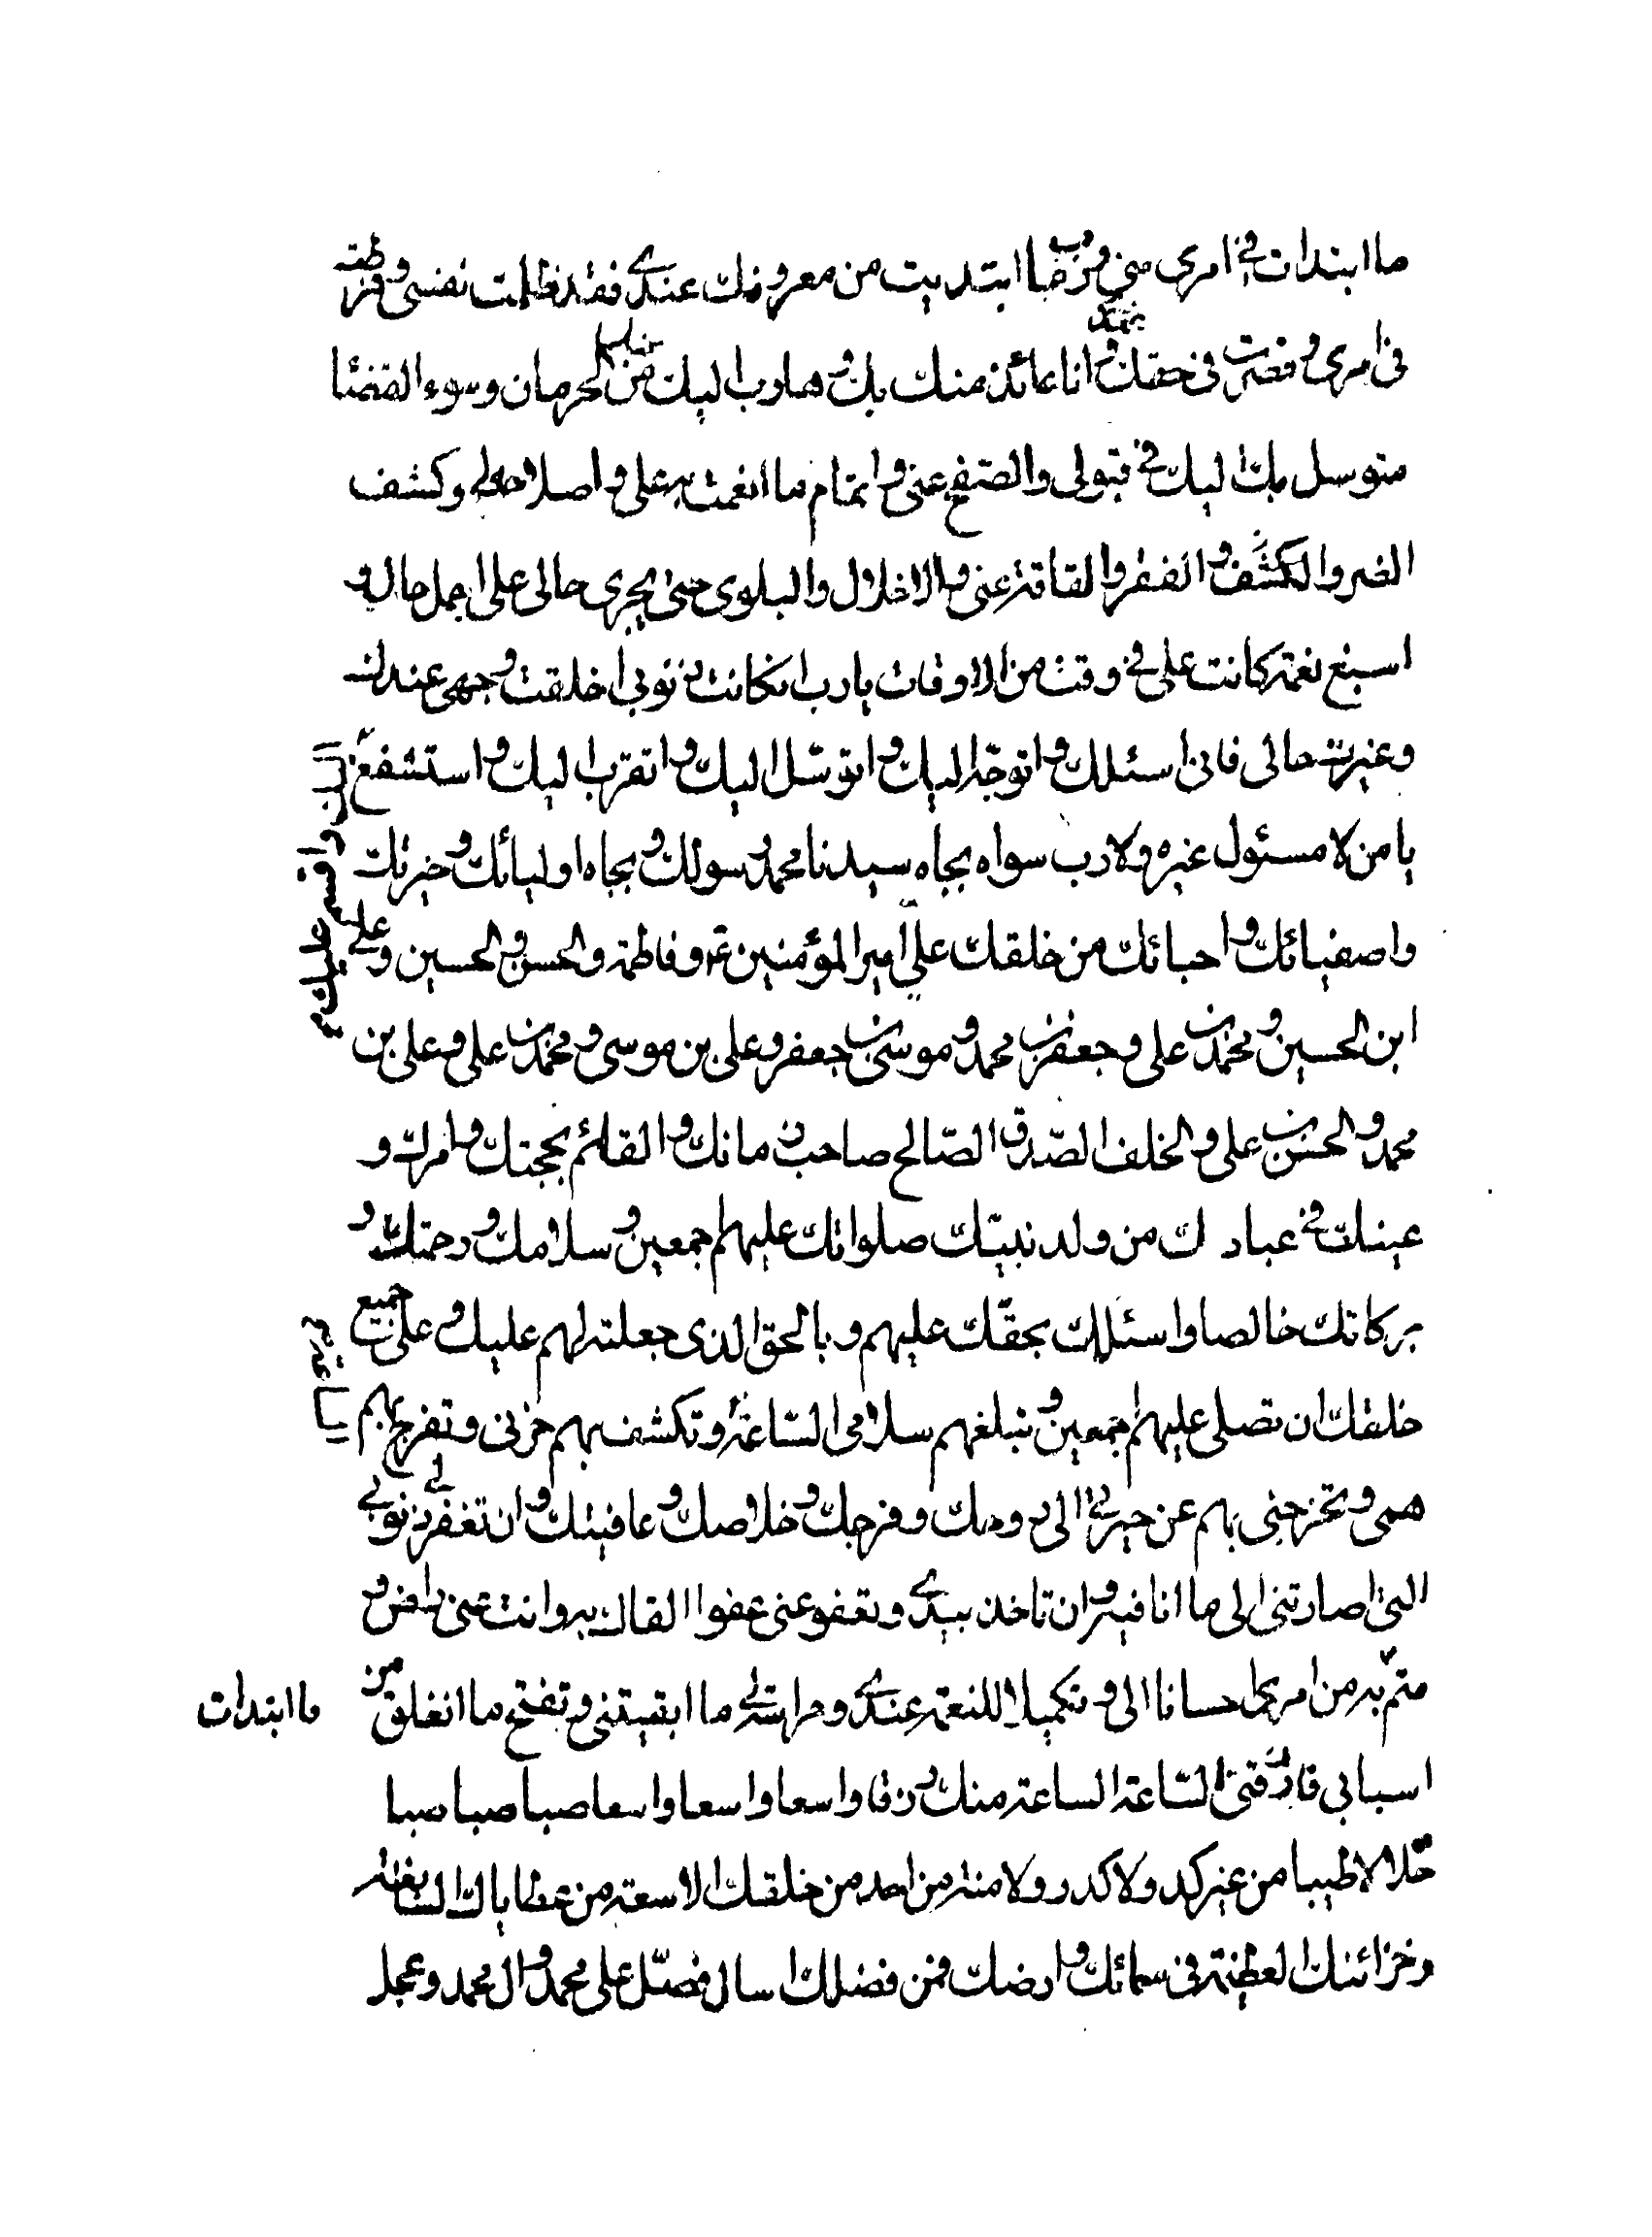 ما ابتدات فى امرى منى و رب ما ابتديت من معروفك عندى فقد ظلمت نفسى و فرطت
فى امرى و قصرت فى حقك و انا عائذ منك بك و هارب اليك من الحرمان وسوء القضا
متوسل بك اليك فى قبولى والصفح عنى و اتمام ما انعمت به على و اصلاح حالى و كشف
الضر والكشف و الفقر والفاقة عنى و الاخلال والبلوى حتى يجرى حالى على اجمل حال و
اسبغ نعمة كانت على فى وقت من الاوقات يا رب ان كانت ذنوبى اخلقت وجهى عندك
وغيرت حالى فانى اسئلك و اتوجّه اليك و اتوسّل اليك و اتقرب اليك و استشفع
اليك و اقسم عليك
يا من لا مسئول غيره ولا رب سواه بجاه سيدنا محمد رسولك و بجاه اوليائك و خيرتك
واصفيائك و احبائك من خلقك على امير المؤمنين و فاطمة والحسن والحسين و على
ابن الحسين و محمد بن على و جعفر بن محمد و موسى بن جعفر و على بن موسى و محمد بن على و على بن
محمد والحسن بن على والخلف الصّدق الصّالح صاحب زمانك و القائم بحجتك و امرك و
عينك فى عبادك من ولد نبيّك صلواتك عليهم اجمعين و سلامك و رحمتك و
بركاتك خالصا واسئلك بحقّك عليهم و بالحق الذى جعلته لهم عليك و على جميع
خلقك ان تصلى عليهم اجمعين و تبلغهم سلامى السّاعة و تكشف بهم حزنى و تفرج بهم
همى و تخرجنى بهم عن حيرتى الى روحك و فرجك و خلاصك و عافيتك و ان تغفر لى ذنوبى
التى اصارتنى الى ما انا فيه و ان تاخذ بيدى و تعفو عنى عفوا القاك به و انت عنى راض و
متمّ به من امرى احسانا الى و تكميلا للنعمة عندى و حراسة لى ما ابقيتنى و تفتح ما انغلق من
ما ابتدات
اسبابى فارزقنى السّاعة الساعة منك رزقا واسعا واسعا واسعا صبا صبا صبا
حلالا طيبا من غير كد ولا كدر ولا منة من احد من خلقك الا سعة من عطاياك السابغة
و خزائنك العظيمة فى سمائك و ارضك فمن فضلك اسال فصلّ على محمد و ال محمد و عجل